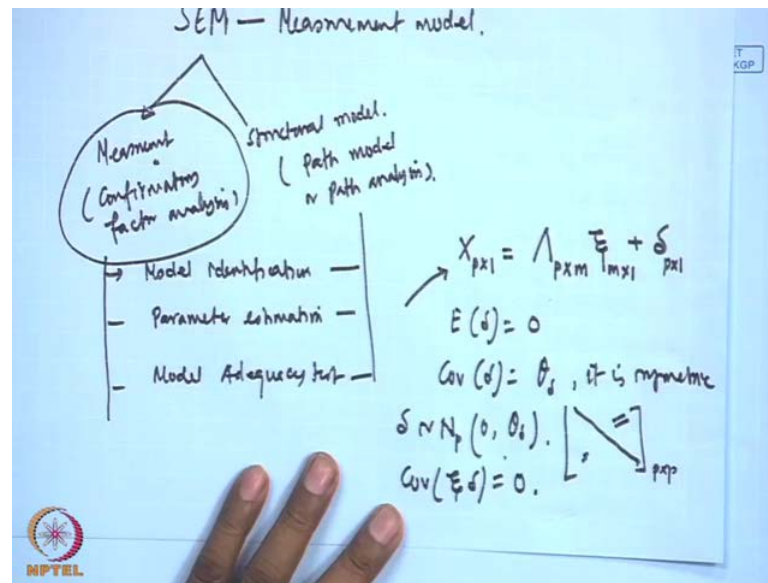 SEM — Measurement model.
Measurement
(Confirmatory
factor analysis)
Structural model.
(Path model
or Path analysis).
→ Model identification —
— Parameter estimation —
— Model Adequacy test —
X_{p×1} = Λ_{p×m} ξ_{m×1} + δ_{p×1}
E(δ) = 0
Cov(δ) = θ_δ, it is symmetric
δ ~ N_p(0, θ_δ). [ = ]_{p×p}
Cov(ξ δ) = 0.
KGP
NPTEL